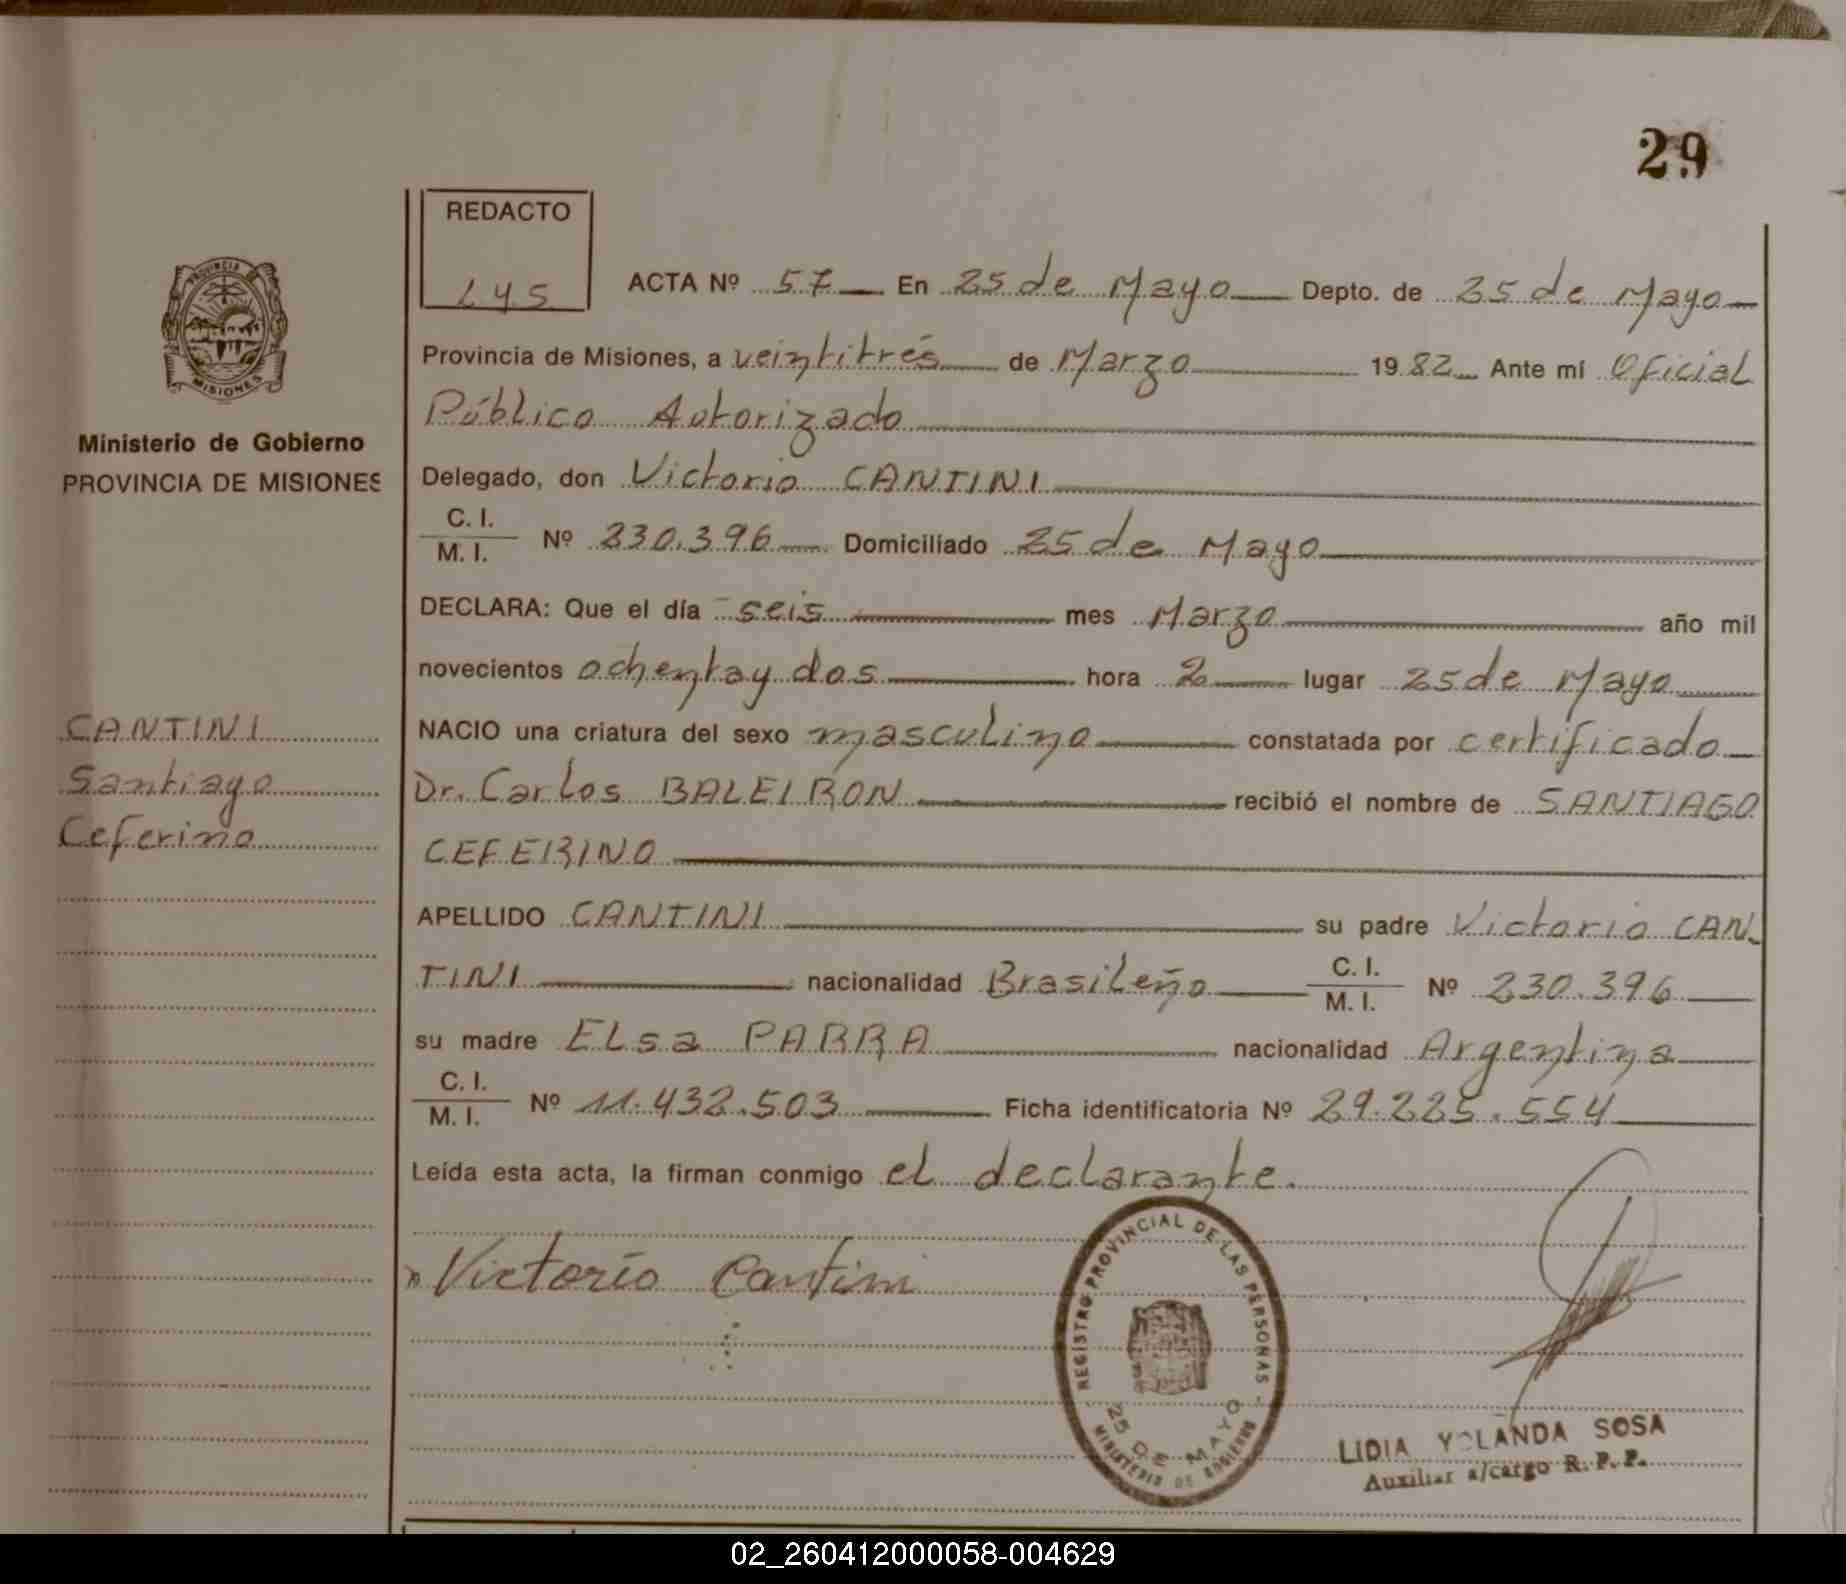 29
REDACTO
L Y S
ACTA Nº 57 En 25 de Mayo Depto. de 25 de Mayo
Provincia de Misiones, a veintitrés de Marzo 1982 Ante mí Oficial
Público Autorizado
PROVINCIA DE
MISIONES
Ministerio de Gobierno
PROVINCIA DE MISIONES
Delegado, don Victorio CANTINI
C. I.
M. I. Nº 230.396 Domiciliado 25 de Mayo
DECLARA: Que el día seis mes Marzo año mil
novecientos ochenta y dos hora 2 lugar 25 de Mayo
CANTINI
Santiago
Ceferino
NACIO una criatura del sexo masculino constatada por certificado
Dr. Carlos BALEIRON recibió el nombre de SANTIAGO
CEFERINO
APELLIDO CANTINI su padre Victorio CAN-
TINI nacionalidad Brasileño C. I. M. I. Nº 230.396
su madre ELsa PARRA nacionalidad Argentina
C. I.
M. I. Nº 11.432.503 Ficha identificatoria Nº 29.225.554
Leída esta acta, la firman conmigo el declarante.
Victorio Cantini
REGISTRO PROVINCIAL DE LAS PERSONAS
25 DE MAYO
MINISTERIO DE GOBIERNO
LIDIA YOLANDA SOSA
Auxiliar a/cargo R. P. P.
02_260412000058-004629